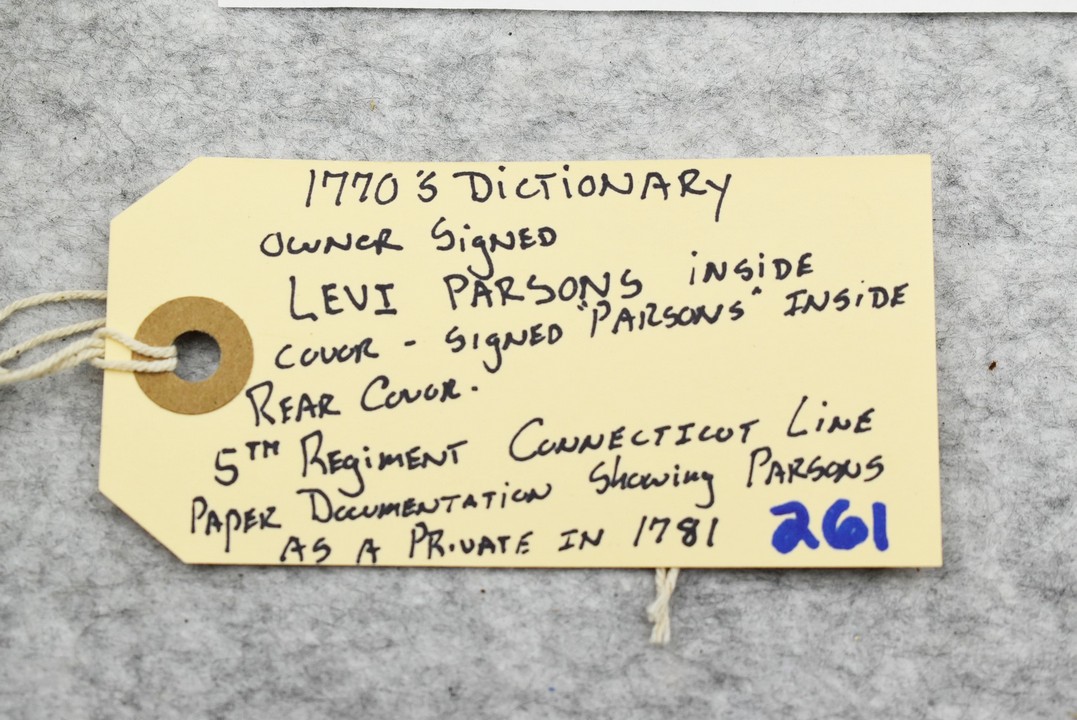 1770'S DICTIONARY
OWNER SIGNED
LEVI PARSONS INSIDE
COVOR - SIGNED "PARSONS" INSIDE
REAR COVOR.
5TH REGIMENT CONNECTICUT LINE
PAPER DOCUMENTATION SHOWING PARSONS
AS A PRIVATE IN 1781 261